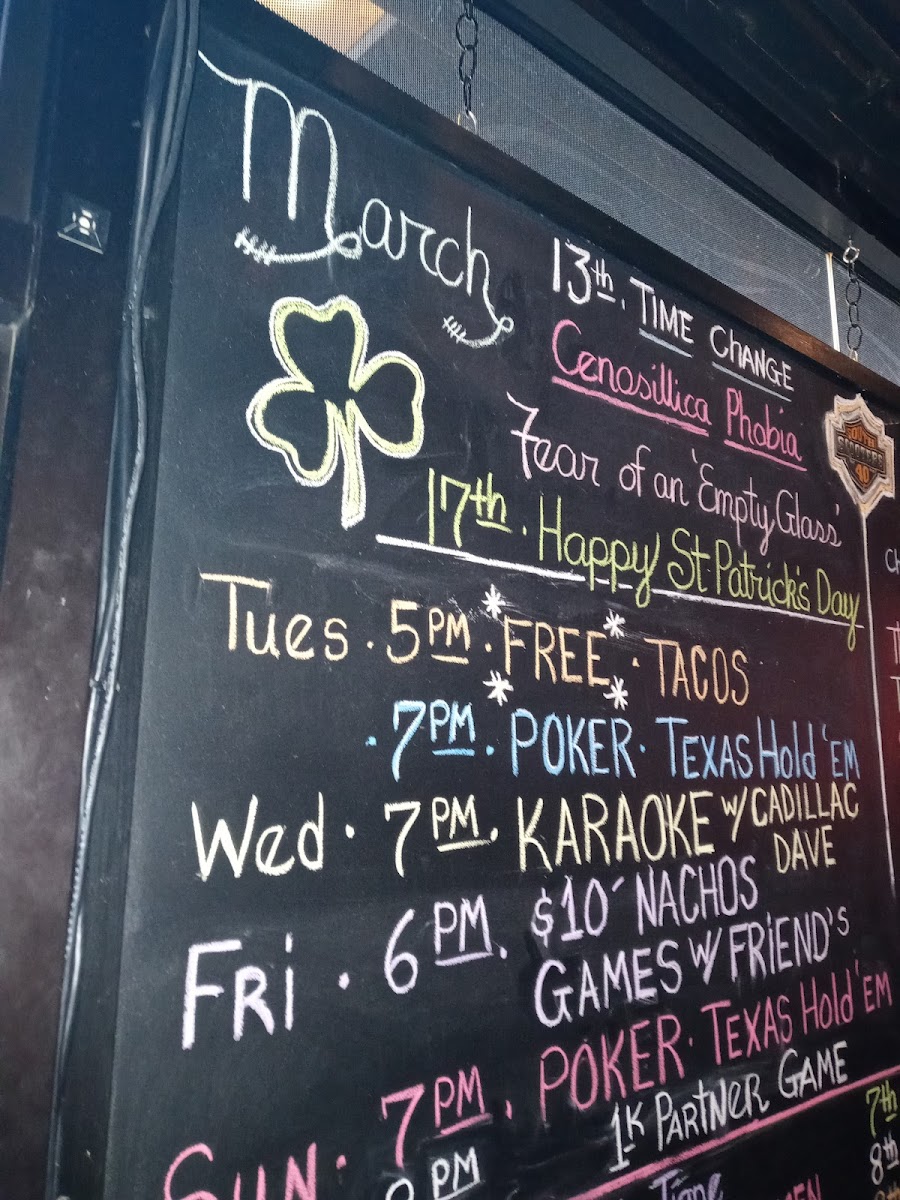 March
13th. TIME CHANGE
Cenosillica Phobia
Fear of an 'Empty Glass'
17th. Happy St Patrick's Day
Tues. 5PM. FREE. TACOS
. 7PM. POKER. TEXAS Hold 'EM
Wed. 7PM. KARAOKE w/ CADILLAC
DAVE
FRi. 6PM. $10 NACHOS
GAMES w/ FRiEND'S
SUN. 7PM. POKER. TEXAS Hold 'EM
1K PARTNER GAME
PM
7th
8th
SCOOTERS
40